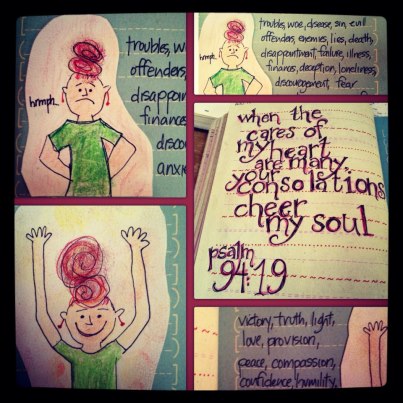 hrmph..
troubles, w
offenders,
disappoin
finances
disco
anxie
hrmph..
troubles, woe, disease, sin, evil
offenders, enemies, lies, death,
disappointment, failure, illness,
finances, deception, loneliness,
discouragement, fear
when the
cares of
my heart
are many,
your
consolations
cheer
my soul
psalm
94:19
victory, truth, light,
love, provision,
peace, compassion,
confidence, humility,